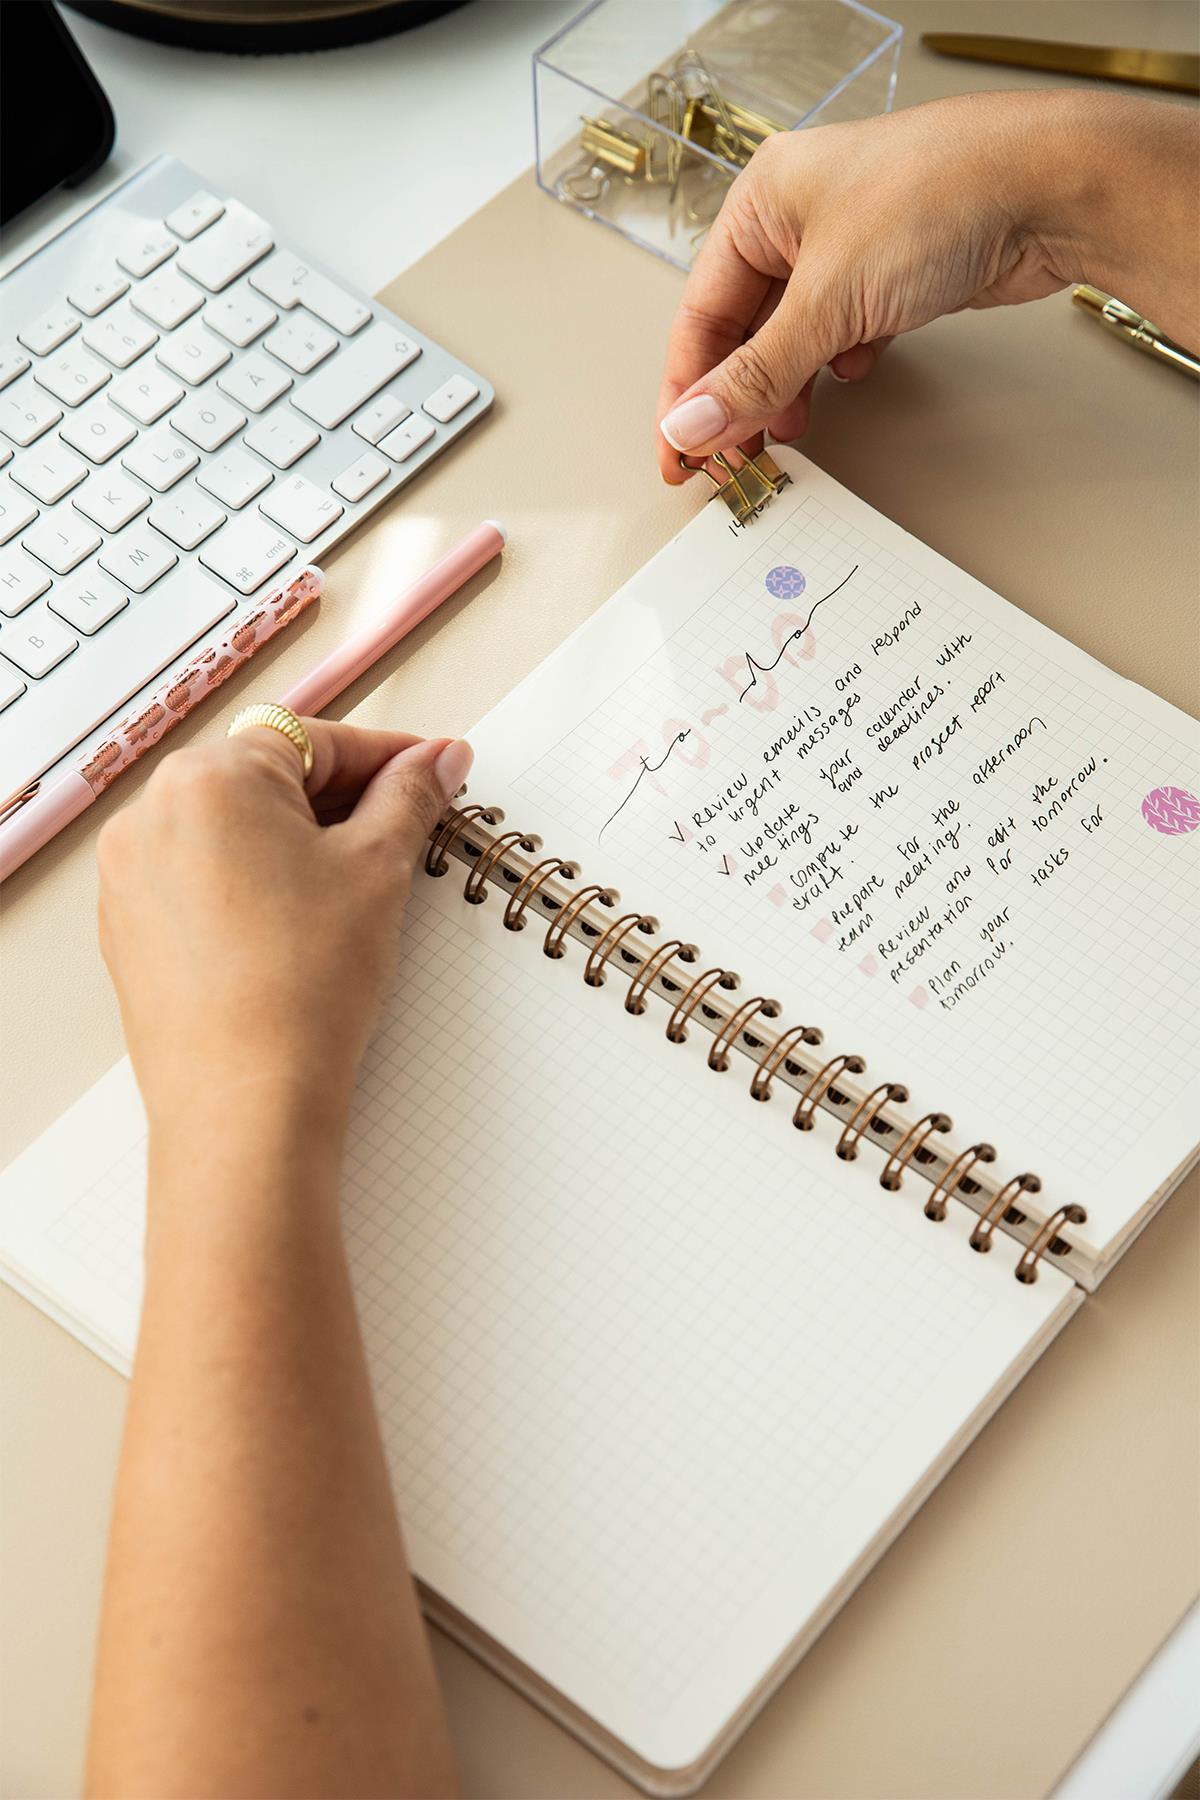 to-do
TO-DO
✓ Review emails and respond
to urgent messages
✓ Update your calendar with
meetings and deadlines.
Compute the project report
draft.
Prepare for the afternoon
team meating.
Review and edit the
presentation for tomorrow.
Plan your tasks for
tomorrow.
P
Ü
O
Ö
Ä
I
L @
K
J
M
H
N
B
cmd
⌘